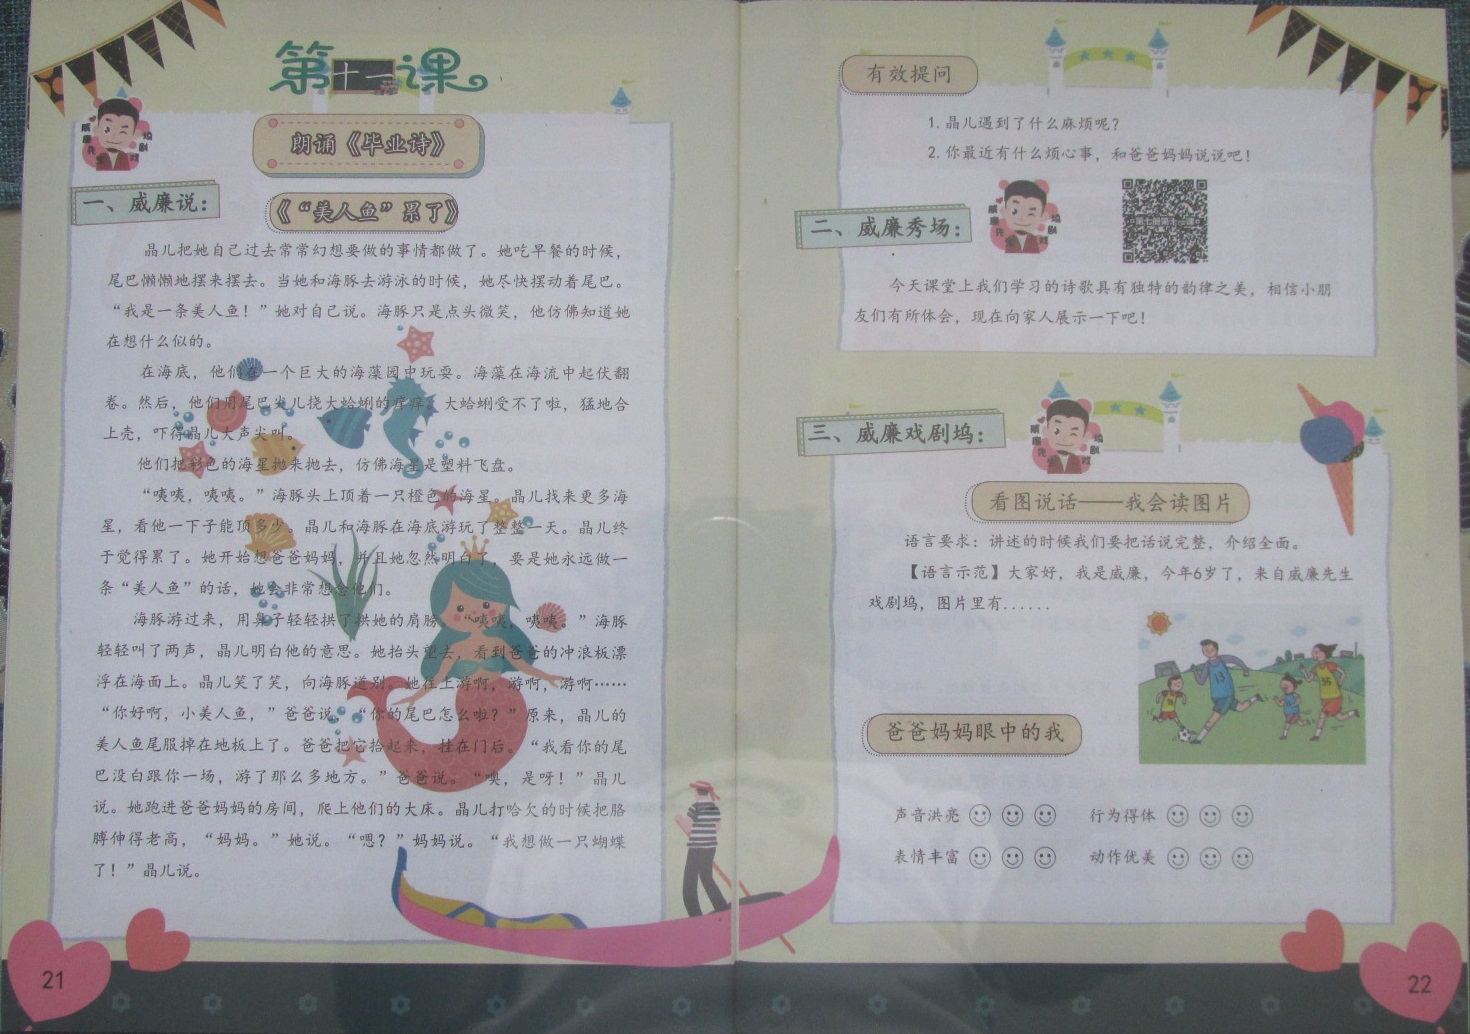 第十一课
朗诵《毕业诗》
一、威廉说：
《“美人鱼”累了》
晶儿把她自己过去常常幻想要做的事情都做了。她吃早餐的时候，
尾巴懒懒地摆来摆去。当她和海豚去游泳的时候，她尽快摆动着尾巴。
“我是一条美人鱼！”她对自己说。海豚只是点头微笑，他仿佛知道她
在想什么似的。
在海底，他们在一个巨大的海藻园中玩耍。海藻在海流中起伏翻
卷。然后，他们用尾巴尖儿挠大蛤蜊的痒痒。大蛤蜊受不了啦，猛地合
上壳，吓得晶儿大声尖叫。
他们把彩色的海星抛来抛去，仿佛海星是塑料飞盘。
“咦咦，咦咦。”海豚头上顶着一只橙色的海星。晶儿找来更多海
星，看他一下子能顶多少。晶儿和海豚在海底游玩了整整一天。晶儿终
于觉得累了。她开始想爸爸妈妈，并且她忽然明白了，要是她永远做一
条“美人鱼”的话，她会非常想念他们。
海豚游过来，用鼻子轻轻拱了拱她的肩膀。“咦咦，咦咦。”海豚
轻轻叫了两声，晶儿明白他的意思。她抬头望去，看到爸爸的冲浪板漂
浮在海面上。晶儿笑了笑，向海豚道别。她往上游啊，游啊，游啊……
“你好啊，小美人鱼，”爸爸说。“你的尾巴怎么啦？”原来，晶儿的
美人鱼尾服掉在地板上了。爸爸把它拾起来，挂在门后。“我看你的尾
巴没白跟你一场，游了那么多地方。”爸爸说。“噢，是呀！”晶儿
说。她跑进爸爸妈妈的房间，爬上他们的大床。晶儿打哈欠的时候把胳
膊伸得老高，“妈妈。”她说。“嗯？”妈妈说。“我想做一只蝴蝶
了！”晶儿说。
21
有效提问
1. 晶儿遇到了什么麻烦呢？
2. 你最近有什么烦心事，和爸爸妈妈说说吧！
二、威廉秀场：
今天课堂上我们学习的诗歌具有独特的韵律之美，相信小朋
友们有所体会，现在向家人展示一下吧！
三、威廉戏剧坞：
看图说话——我会读图片
语言要求：讲述的时候我们要把话说完整，介绍全面。
【语言示范】大家好，我是威廉，今年6岁了，来自威廉先生
戏剧坞，图片里有......
13
爸爸妈妈眼中的我
声音洪亮 行为得体
表情丰富 动作优美
22